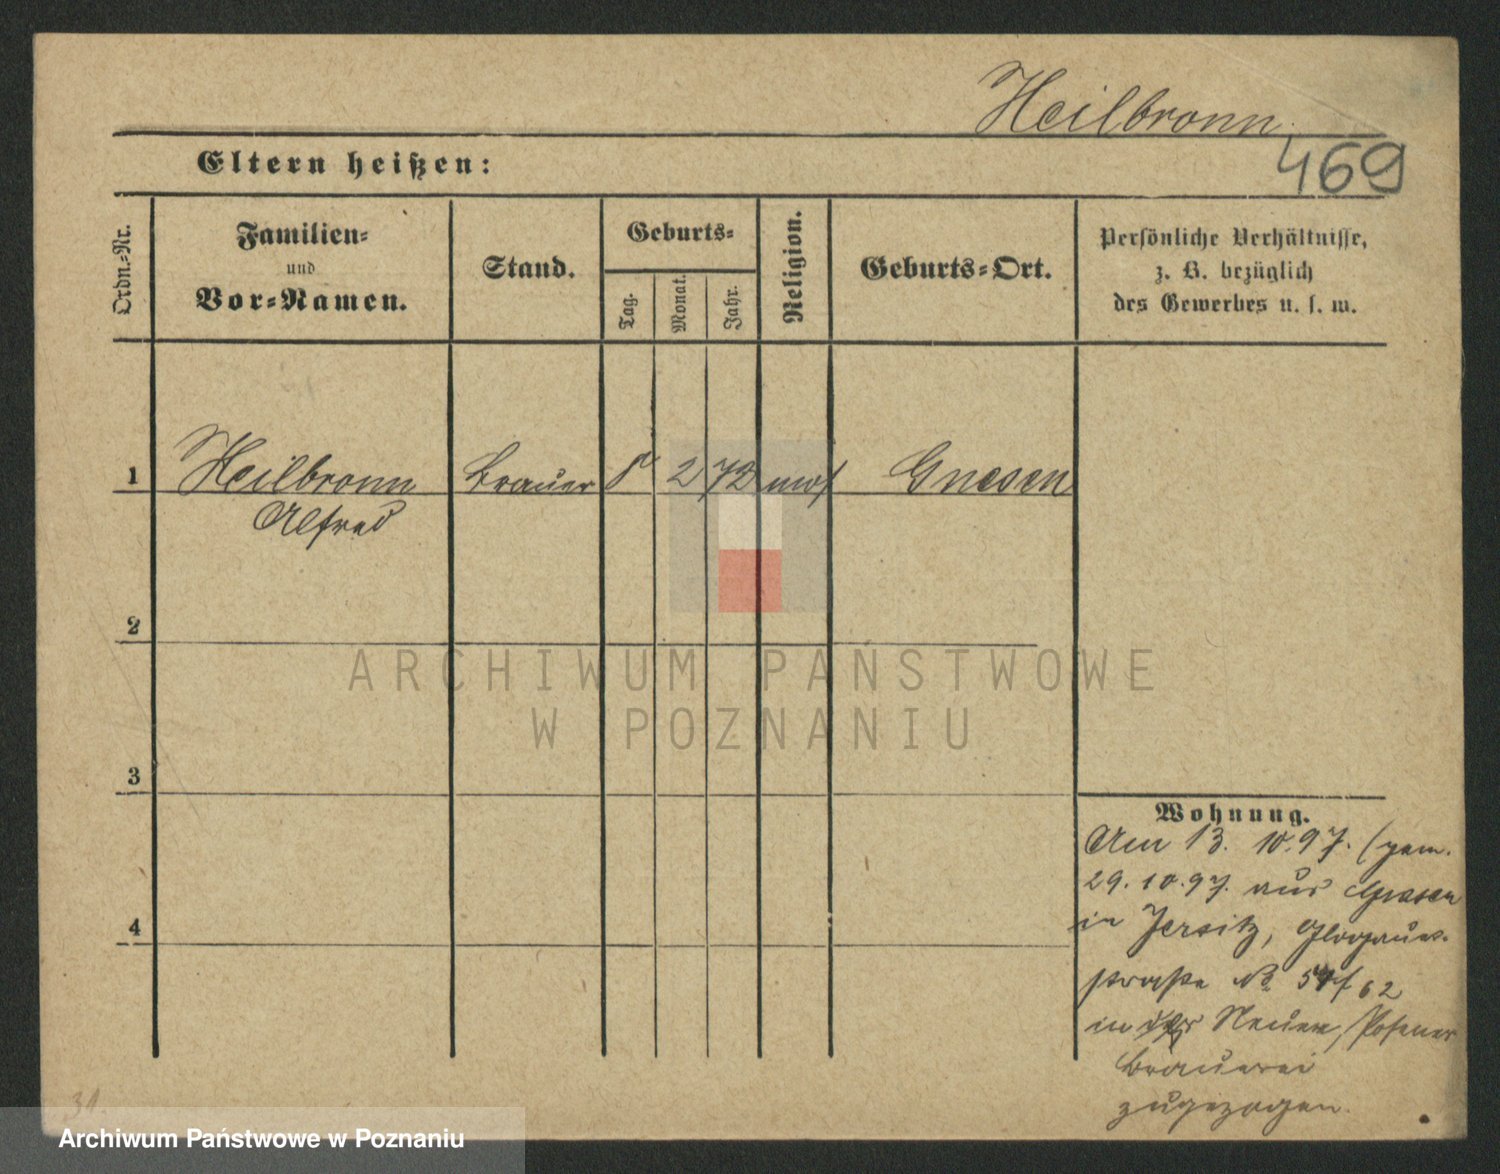 Heilbronn.
469
Eltern heißen:
Ordn.-Nr.
Familien-
und
Vor-Namen.
Stand.
Geburts-
Tag.
Monat.
Jahr.
Religion.
Geburts-Ort.
Persönliche Verhältnisse,
z. B. bezüglich
des Gewerbes u. s. w.
1 Heilbronn Brauer 8 2 72 mos Gnesen
Alfred
2
3
4
Wohnung.
Am 13. 10. 97. (gem.
29. 10. 97. aus
in Jersitz, Glogauer-
straße No 62
in der Neuen Posener
Brauerei
zugezogen.
31.
ARCHIWUM PAŃSTWOWE
W POZNANIU
Archiwum Państwowe w Poznaniu